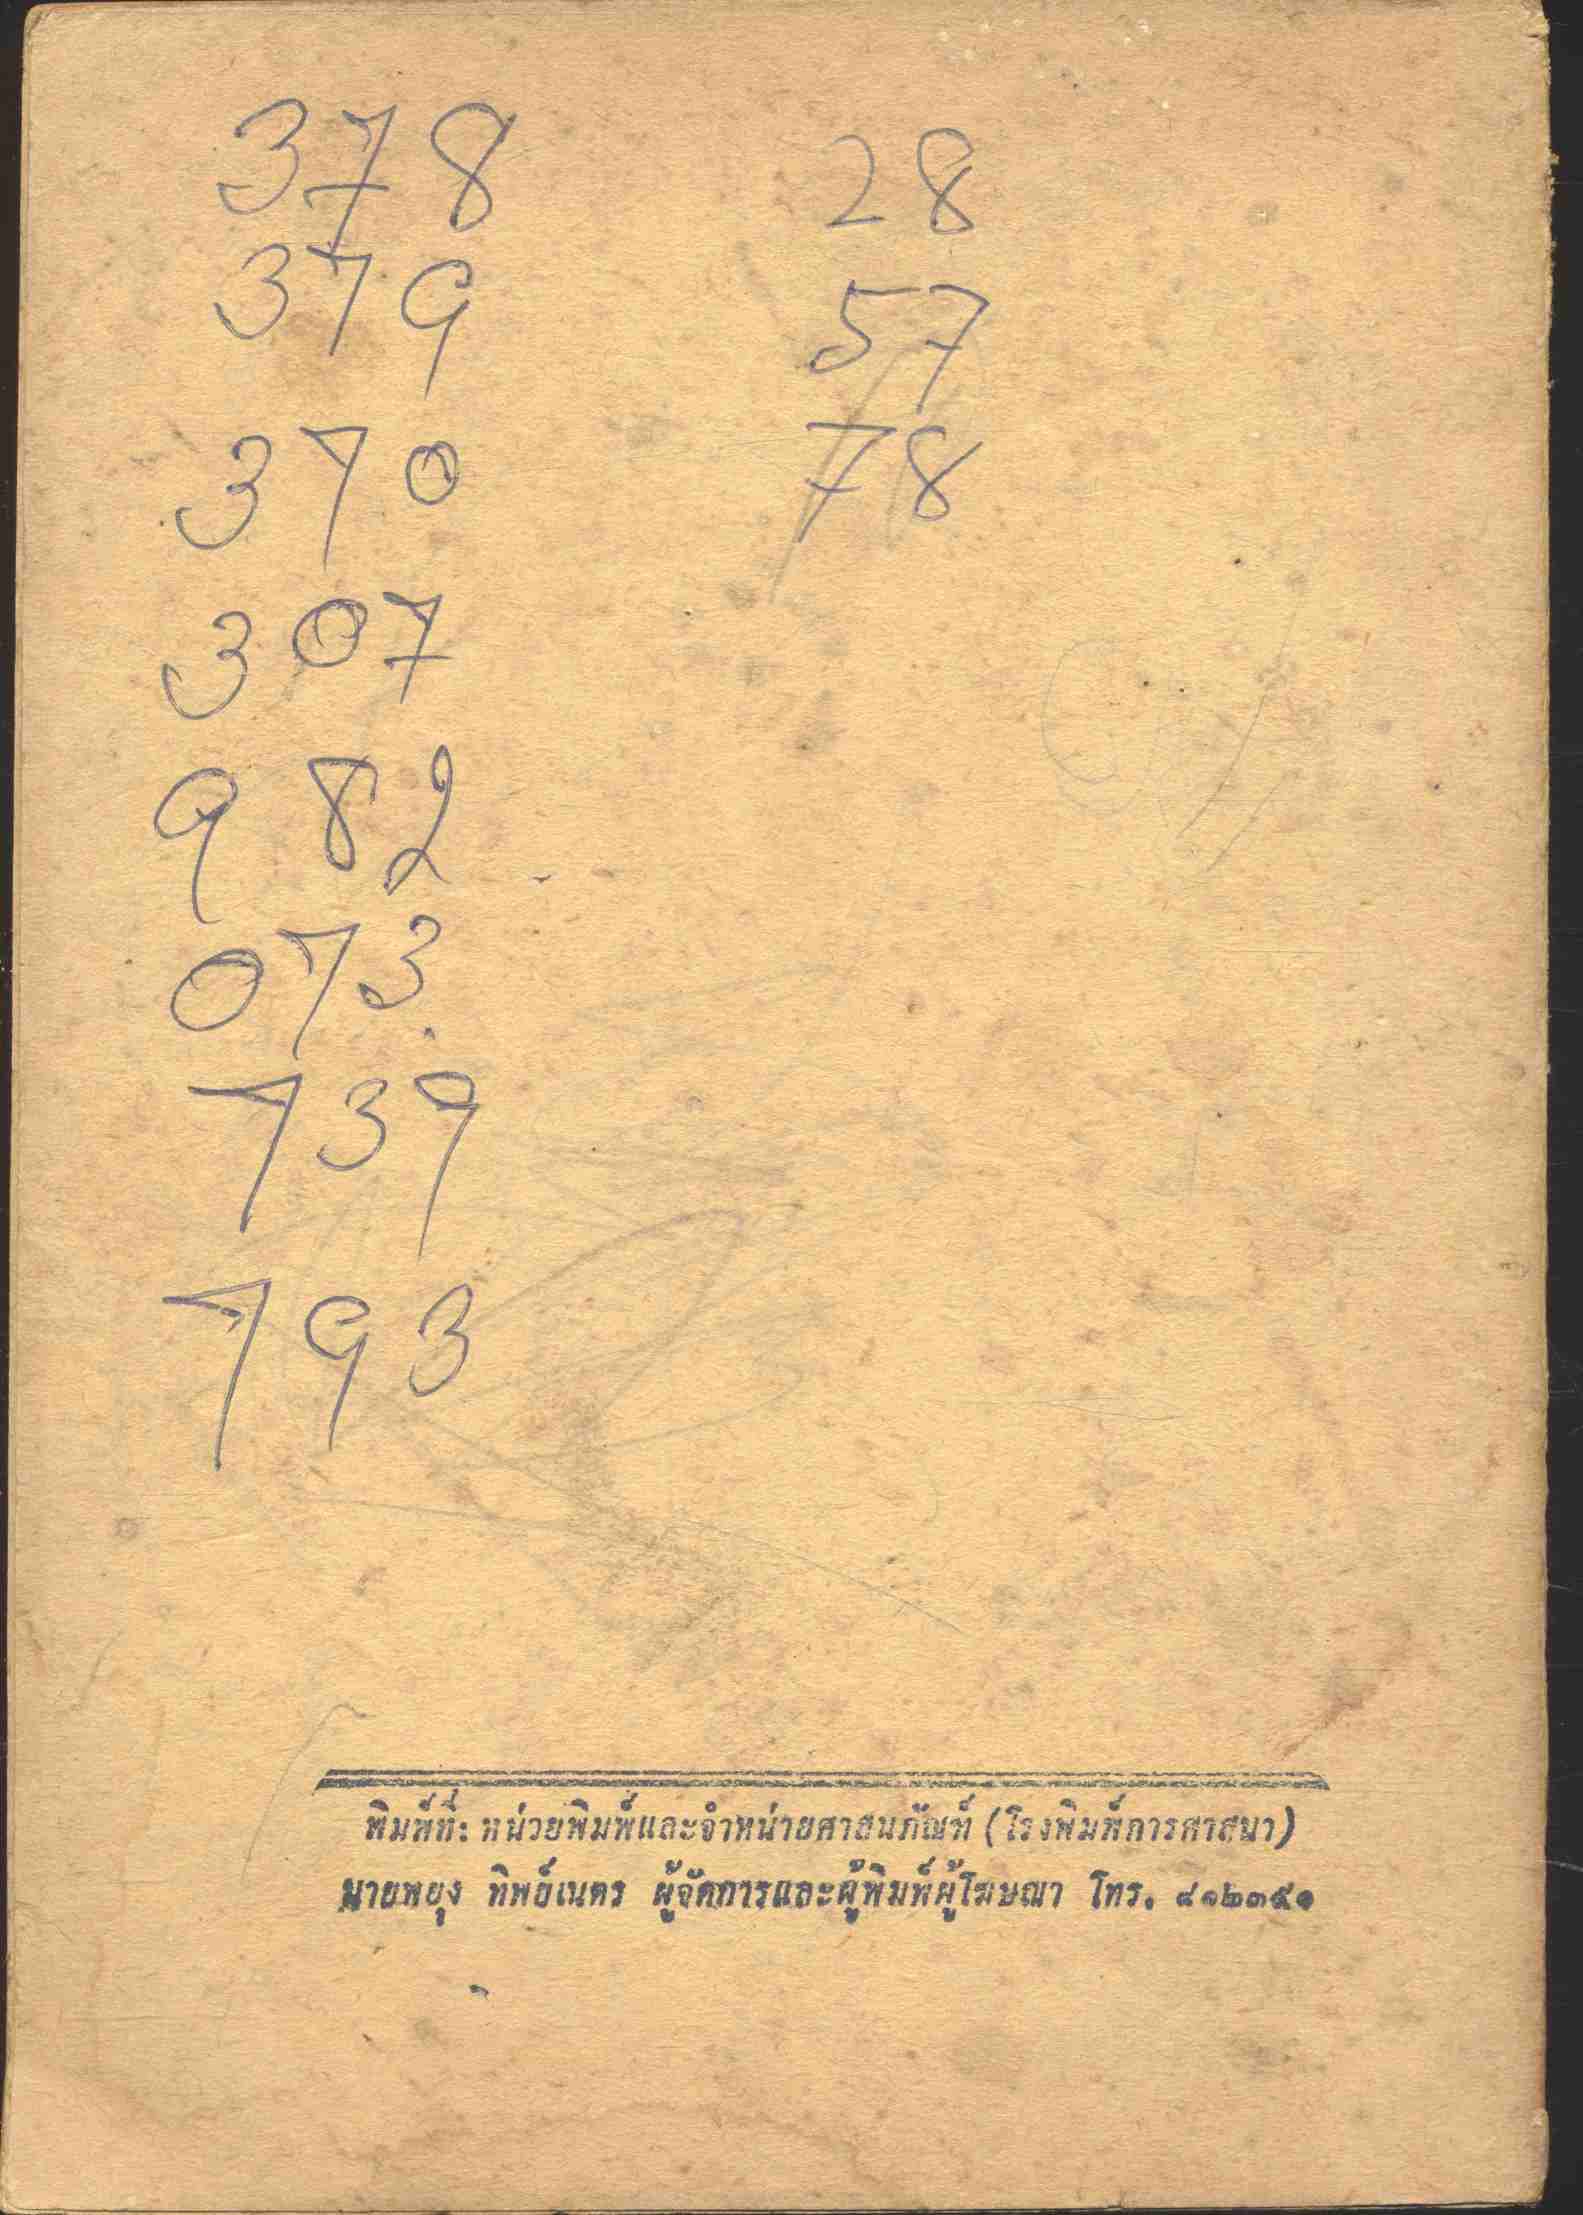 378
379
370
307
982
073
739
793
28
57
78
พิมพ์ที่: หน่วยพิมพ์และจำหน่ายศาสนภัณฑ์ (โรงพิมพ์การศาสนา)
นายพยุง ทิพย์เนตร ผู้จัดการและผู้พิมพ์ผู้โฆษณา โทร. ๘๑๒๓๕๑